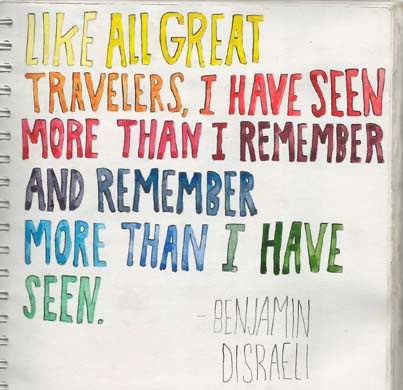 LIKE ALL GREAT
TRAVELERS, I HAVE SEEN
MORE THAN I REMEMBER
AND REMEMBER
MORE THAN I HAVE
SEEN.
- BENJAMIN
DISRAELI